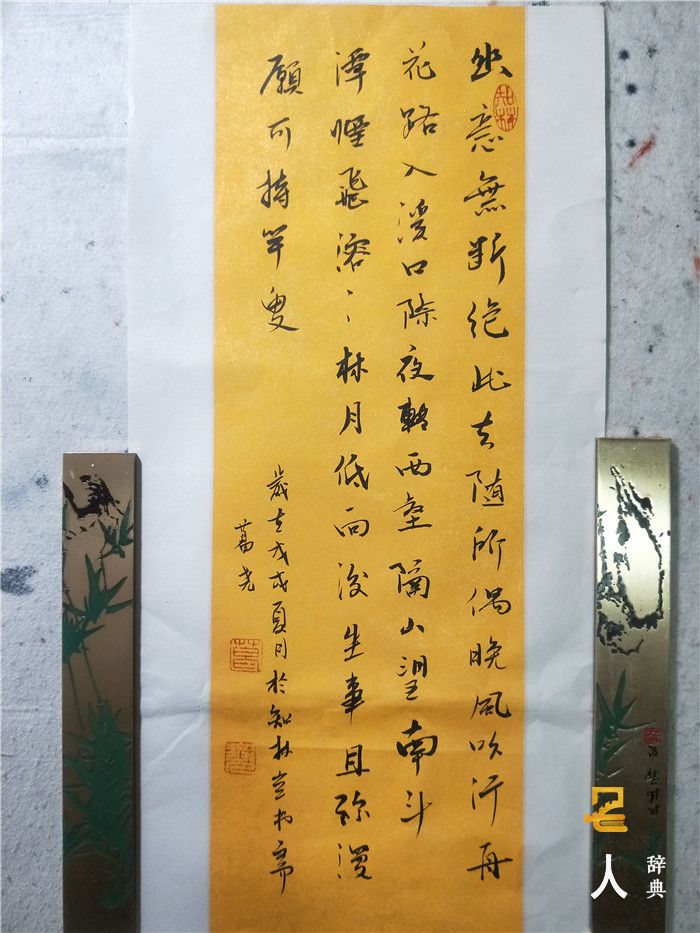 幽意無断绝此去随所偶晚風吹行舟
花路入溪口際夜轉西壑隔山望南斗
潭煙飛溶〻林月低向後生事且弥漫
願可持竿叟
歲在戊戌夏月於知林堂书斋
葛尧
知林
名人
辞典